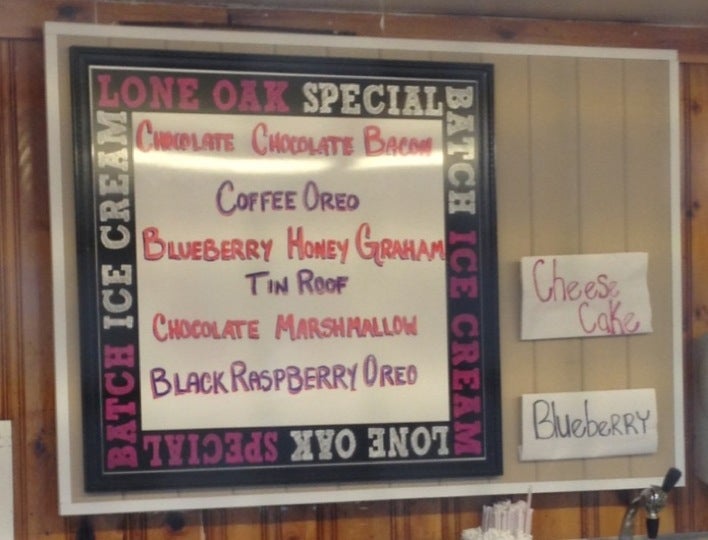 LONE OAK SPECIAL
BATCH ICE CREAM
CHOCOLATE CHOCOLATE BACON
COFFEE OREO
BLUEBERRY HONEY GRAHAM
TIN ROOF
CHOCOLATE MARSHMALLOW
BLACK RASPBERRY OREO
LONE OAK SPECIAL
BATCH ICE CREAM
Cheese
Cake
BluebeRRY